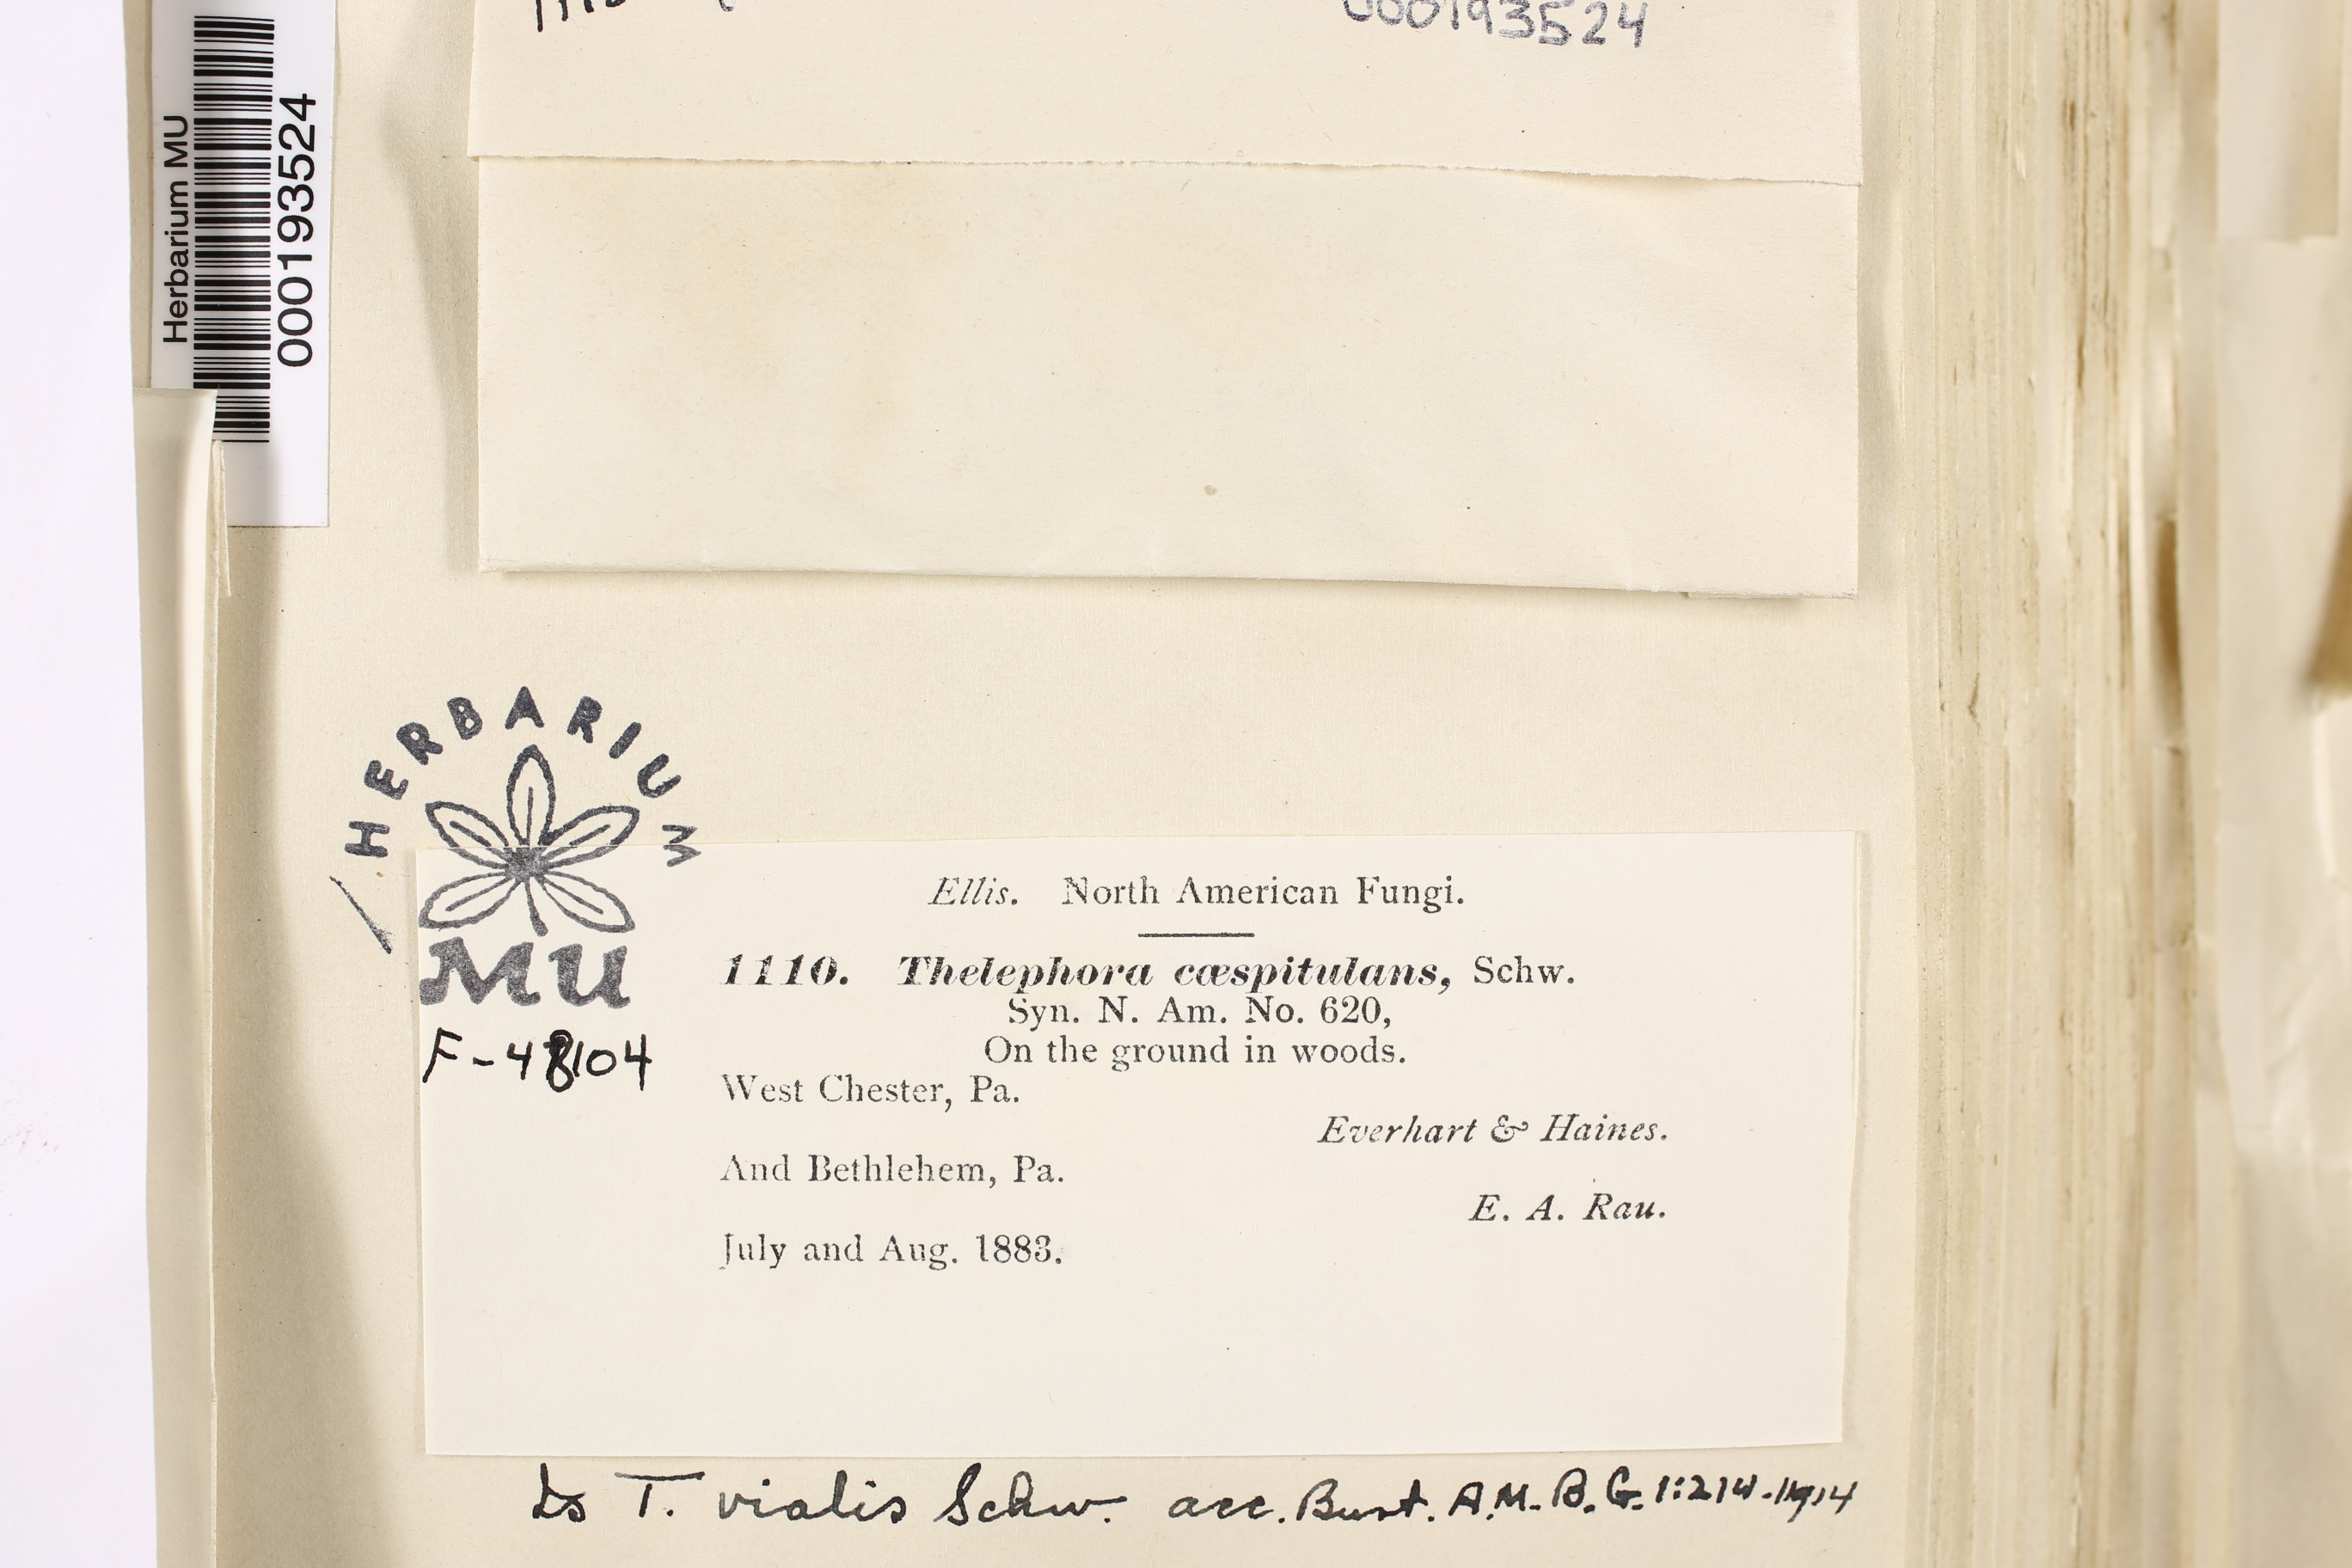 000193524
Herbarium MU
000193524
HERBARIUM
MU
F-48104
Ellis. North American Fungi.
1110. Thelephora cæspitulans, Schw.
Syn. N. Am. No. 620,
On the ground in woods.
West Chester, Pa.
Everhart & Haines.
And Bethlehem, Pa.
E. A. Rau.
July and Aug. 1883.
Is T. vialis Schw. acc. Burt. A.M.B.G. 1:214.1914